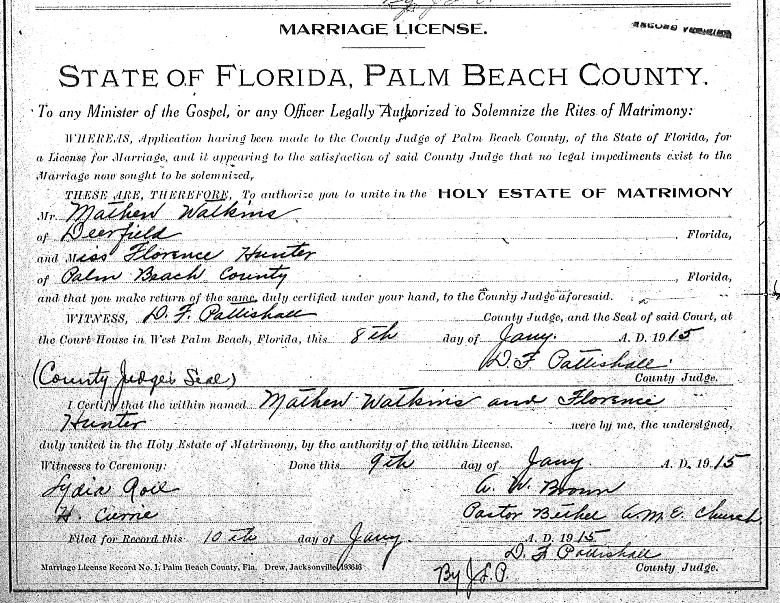 MARRIAGE LICENSE.
STATE OF FLORIDA, PALM BEACH COUNTY.
To any Minister of the Gospel, or any Officer Legally Authorized to Solemnize the Rites of Matrimony:
WHEREAS, Application having been made to the County Judge of Palm Beach County, of the State of Florida, for
a License for Marriage, and it appearing to the satisfaction of said County Judge that no legal impediments exist to the
Marriage now sought to be solemnized,
THESE ARE, THEREFORE, To authorize you to unite in the HOLY ESTATE OF MATRIMONY
Mr. Mathew Watkins
of Deerfield, Florida,
and Miss Florence Hunter
of Palm Beach County, Florida,
and that you make return of the same, duly certified under your hand, to the County Judge aforesaid.
WITNESS, D. F. Pattishall County Judge, and the Seal of said Court, at
the Court House in West Palm Beach, Florida, this 8th day of Jany. A. D. 1915
D. F. Pattishall
(County Judge's Seal) County Judge.
I Certify that the within named Mathew Watkins and Florence
Hunter were by me, the undersigned,
duly united in the Holy Estate of Matrimony, by the authority of the within License.
Witnesses to Ceremony: Done this 9th day of Jany. A. D. 1915
Lydia A. W. Brown
H. Currie Pastor Bethel A.M.E. Church
Filed for Record this 10th day of Jany. A. D. 1915
D. F. Pattishall
Marriage License Record No. 1, Palm Beach County, Fla. Drew, Jacksonville By J.S.P. County Judge.